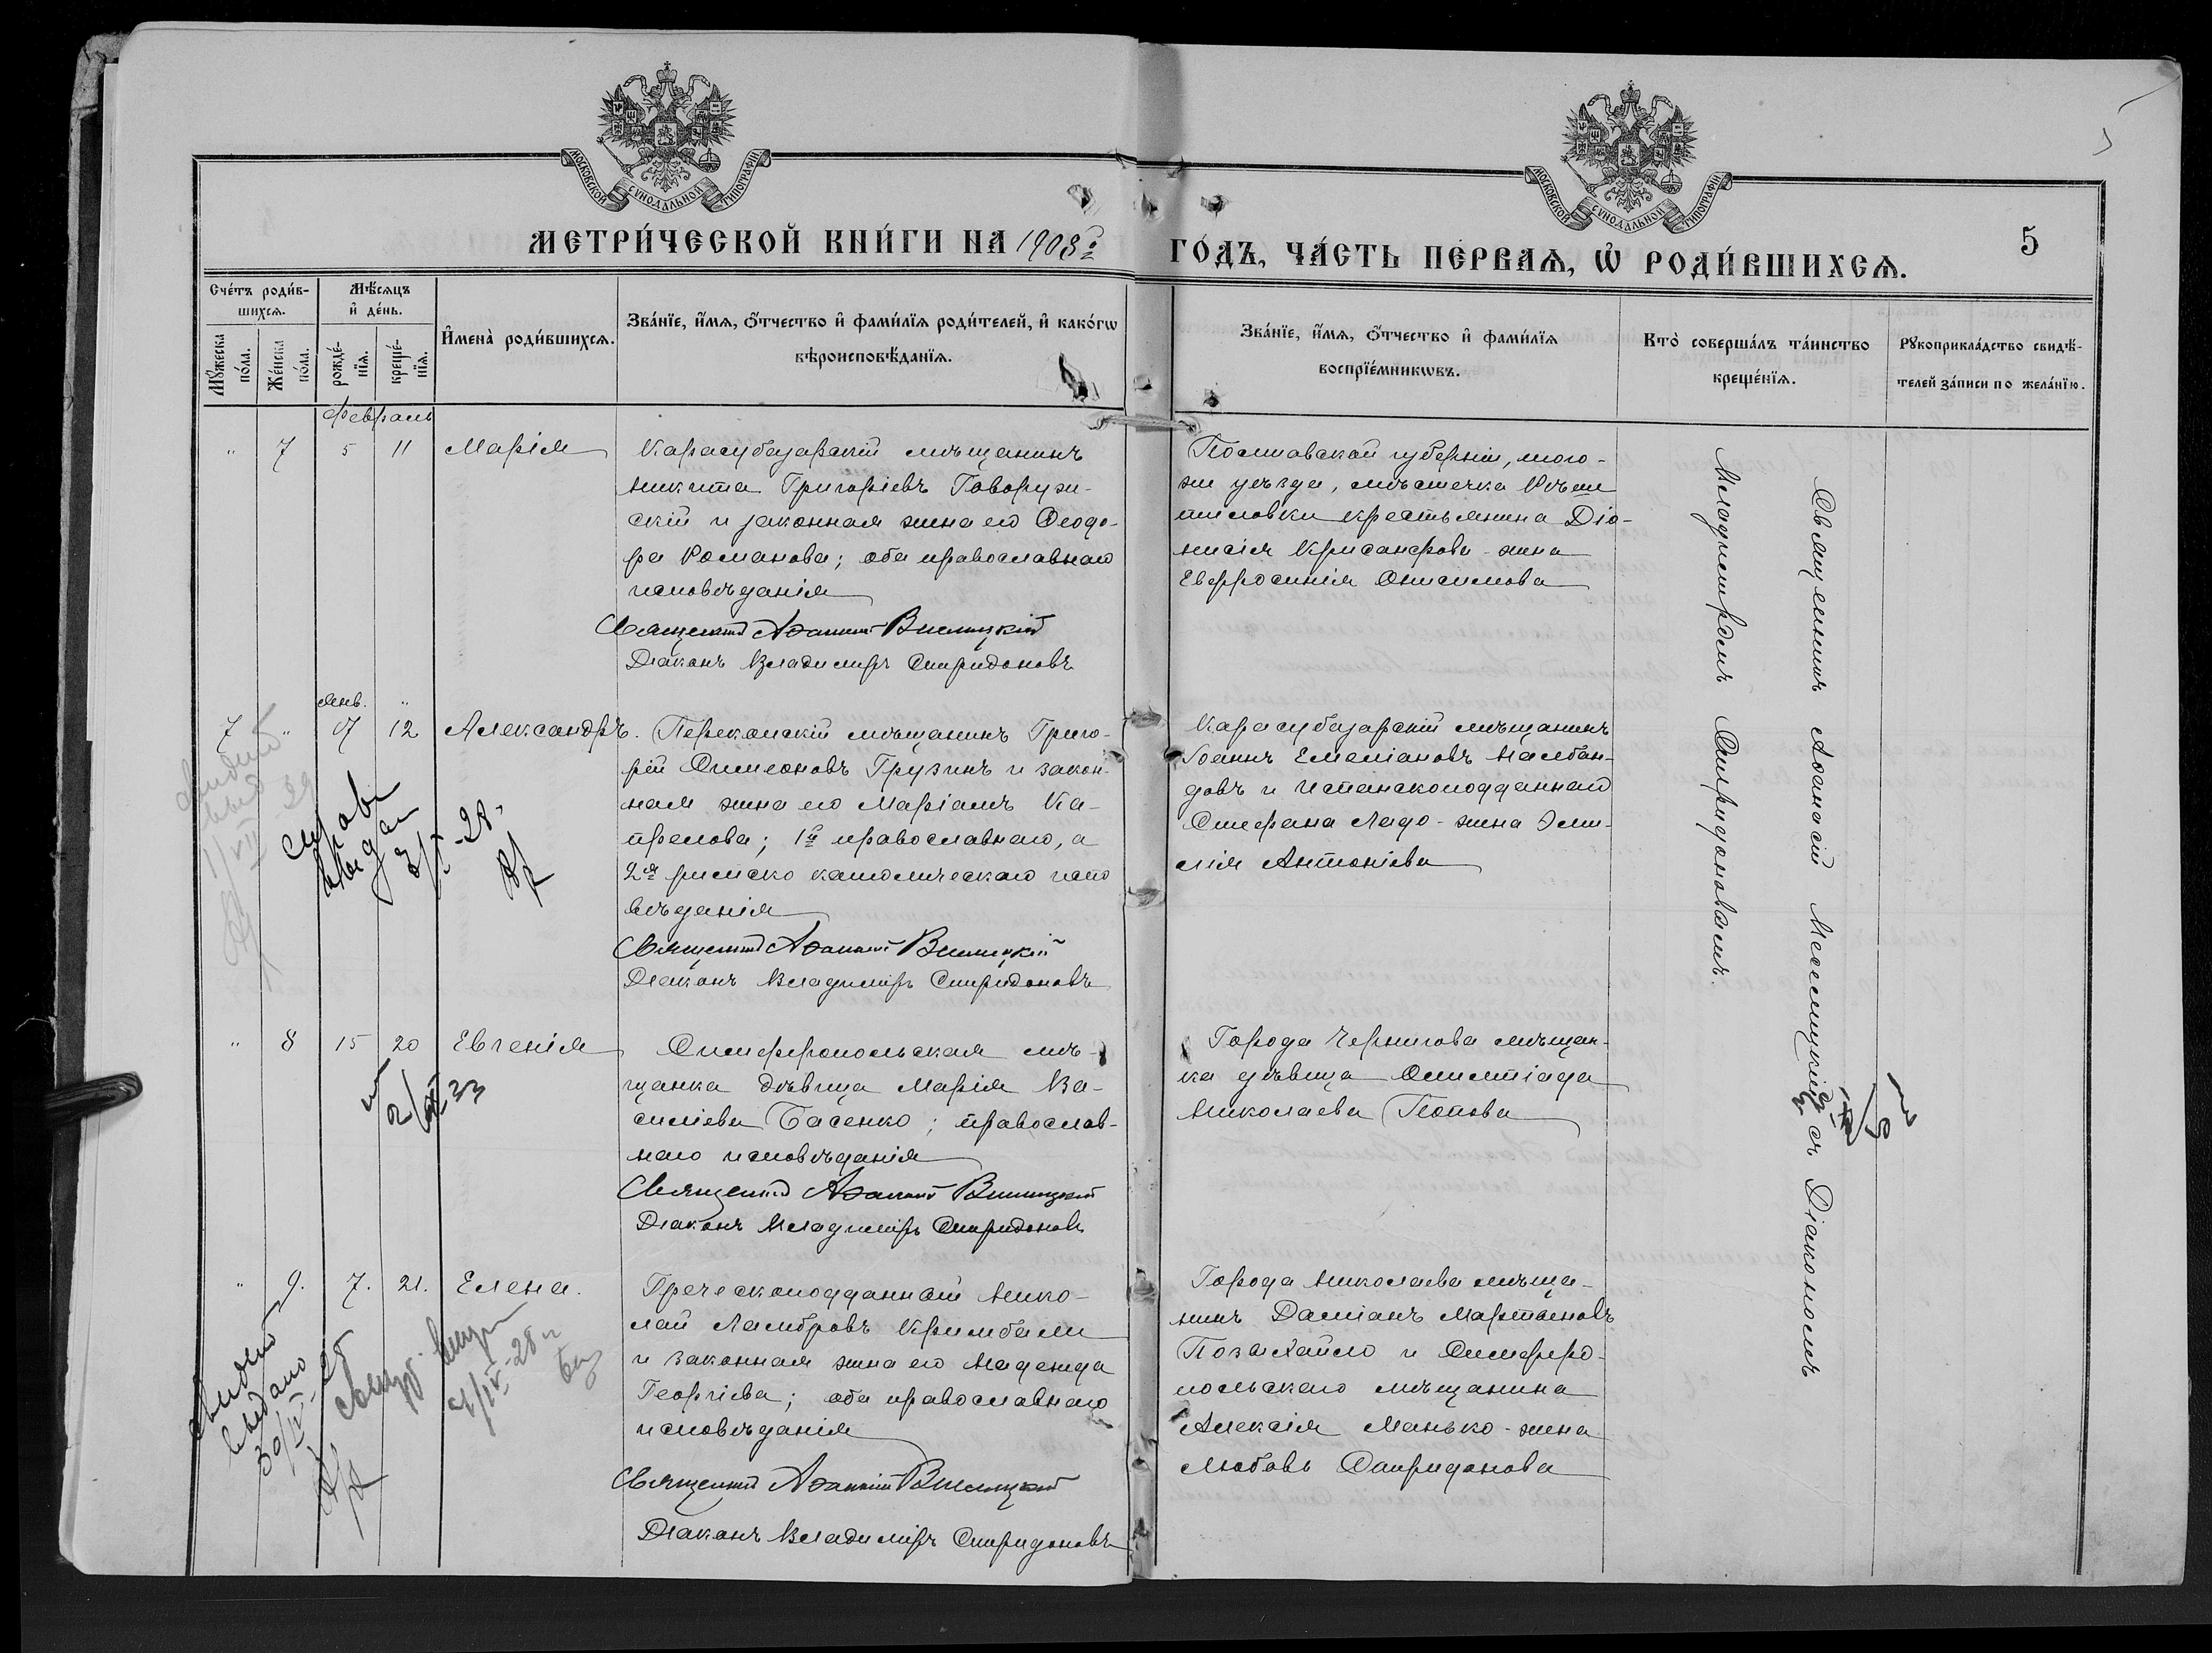 МОСКОВСКОЙ СѴНОДАЛЬНОЙ ТИПОГРАФІИ
МОСКОВСКОЙ СѴНОДАЛЬНОЙ ТИПОГРАФІИ
МЕТРИ́ЧЕСКОЙ КНИ́ГИ НА 1908й
ГО́ДЪ, ЧА́СТЬ ПЕ́РВАѦ, Ѡ҆ РОДИ́ВШИХСѦ.
5
Сче́тъ роди́в-
шихсѧ.
Мѣ́сѧцъ
и҆ де́нь.
Мꙋ́жеска
по́ла.
Же́нска
по́ла.
рожде́-
нїѧ.
креще́-
нїѧ.
И҆мена̀ роди́вшихсѧ.
Зва́нїе, и҆́мѧ, ѻ҆́тчество и҆ фами́лїѧ роди́телей, и҆ како́гѡ
вѣроисповѣ́данїѧ.
Зва́нїе, и҆́мѧ, ѻ҆́тчество и҆ фами́лїѧ
воспрїе́мникѡвъ.
Кто̀ соверша́лъ та́инство
креще́нїѧ.
Рꙋкоприкла́дство свидѣ́-
телей за́писи по жела́нїю.
Февраль
" 7 5 11 Марія
Карасубазарскій мѣщанинъ
Никита Григоріевъ Говоруж-
скій и законная жена его Ѳеодо-
ра Романова; оба православнаго
исповѣданія
Священникъ Аѳанасій
Діаконъ Владиміръ Спиридоновъ
губерніи, того-
же уѣзда, мѣстечка Рѣше-
тиловки крестьянина Діо-
нисія Крисанфова - жена
Евфросинія Онисимова
Янв. "
7 " 17 12 Александръ.
Перекопскій мѣщанинъ Григо-
рій Симеоновъ Грузинъ и закон-
ная жена его Маріамъ Ка-
прелова; 1й православнаго, а
2я римско католическаго испо
вѣданія
Священникъ Аѳанасій
Діаконъ Владиміръ Спиридоновъ
Карасубазарскій мѣщанинъ
Іоаннъ Емеліановъ Налбан-
довъ и Испанскоподданнаго
Стефана Ладо - жена Эми-
лія Антоніова
" 8 15 20 Евгенія
Симферопольская мѣ-
щанка дѣвица Марія Ва-
силіева Басенко; православ-
наго исповѣданія
Священникъ Аѳанасій
Діаконъ Владиміръ Спиридоновъ
Города Чернигова мѣщан-
ка дѣвица Олимпіада
Николаева Попова
" 9. 7. 21. Елена.
Греческоподданный Нико-
лай Ламбровъ Кримбали
и законная жена его Надежда
Георгіева; оба православнаго
исповѣданія
Священникъ Аѳанасій
Діаконъ Владиміръ Спиридоновъ
Города Николаева мѣща-
нинъ Даміанъ Мартыновъ
Позахайло и Симферо-
польскаго мѣщанина
Алексія Манько - жена
Любовь Спиридонова
Священникъ Аѳанасій съ Діакономъ
Владиміромъ Спиридоновымъ.
справк
выдан
3/X-28.
выдано
30/IV-28